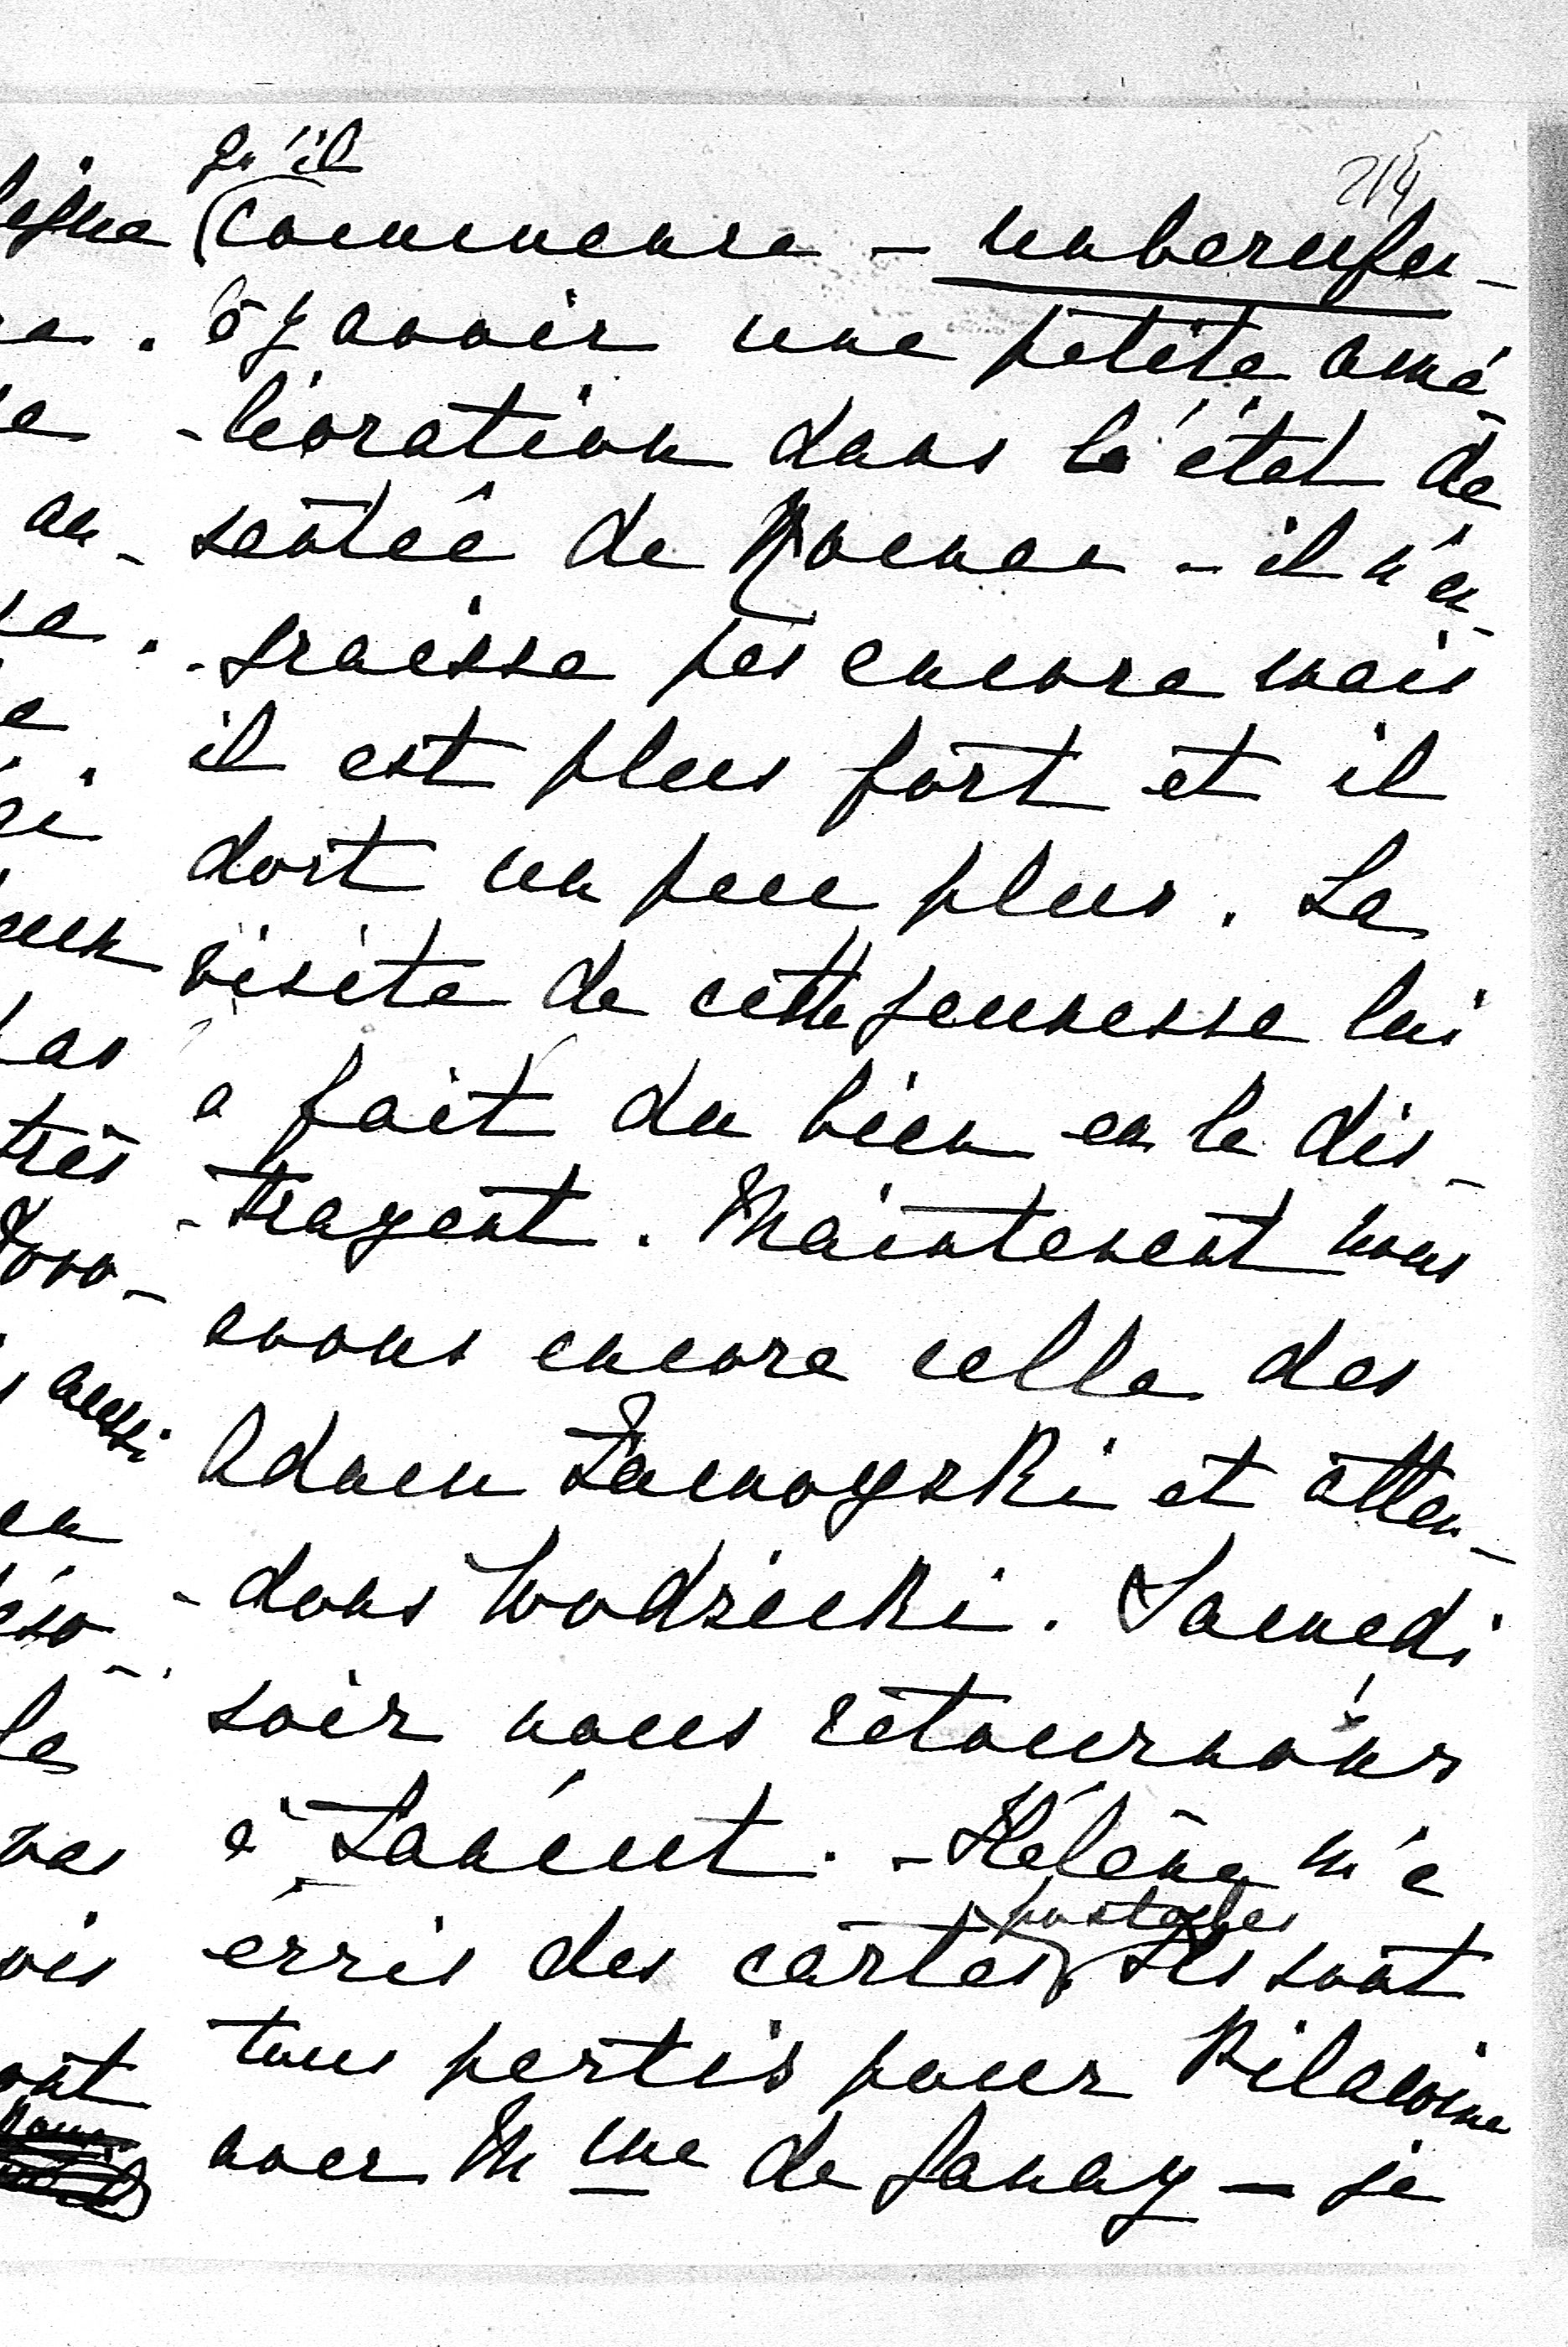 214
qu'il
commence - unberufen -
à y avoir une petite amé-
-lioration dans l'état de
santé de Roman - il n'en-
-graisse pas encore mais
il est plus fort et il
dort un peu plus. La
visite de cette jeunesse lui
a fait du bien en le dis-
-trayant. Maintenant nous
avons encore celle des
Adam Zamoyski et atten-
-dons Wodzicki. Samedi
soir nous retournons
à Łańcut. - Hélène m'a
postales
écris des cartes. Ils sont
tous partis pour Pilawin
avec Mme de Janay - je